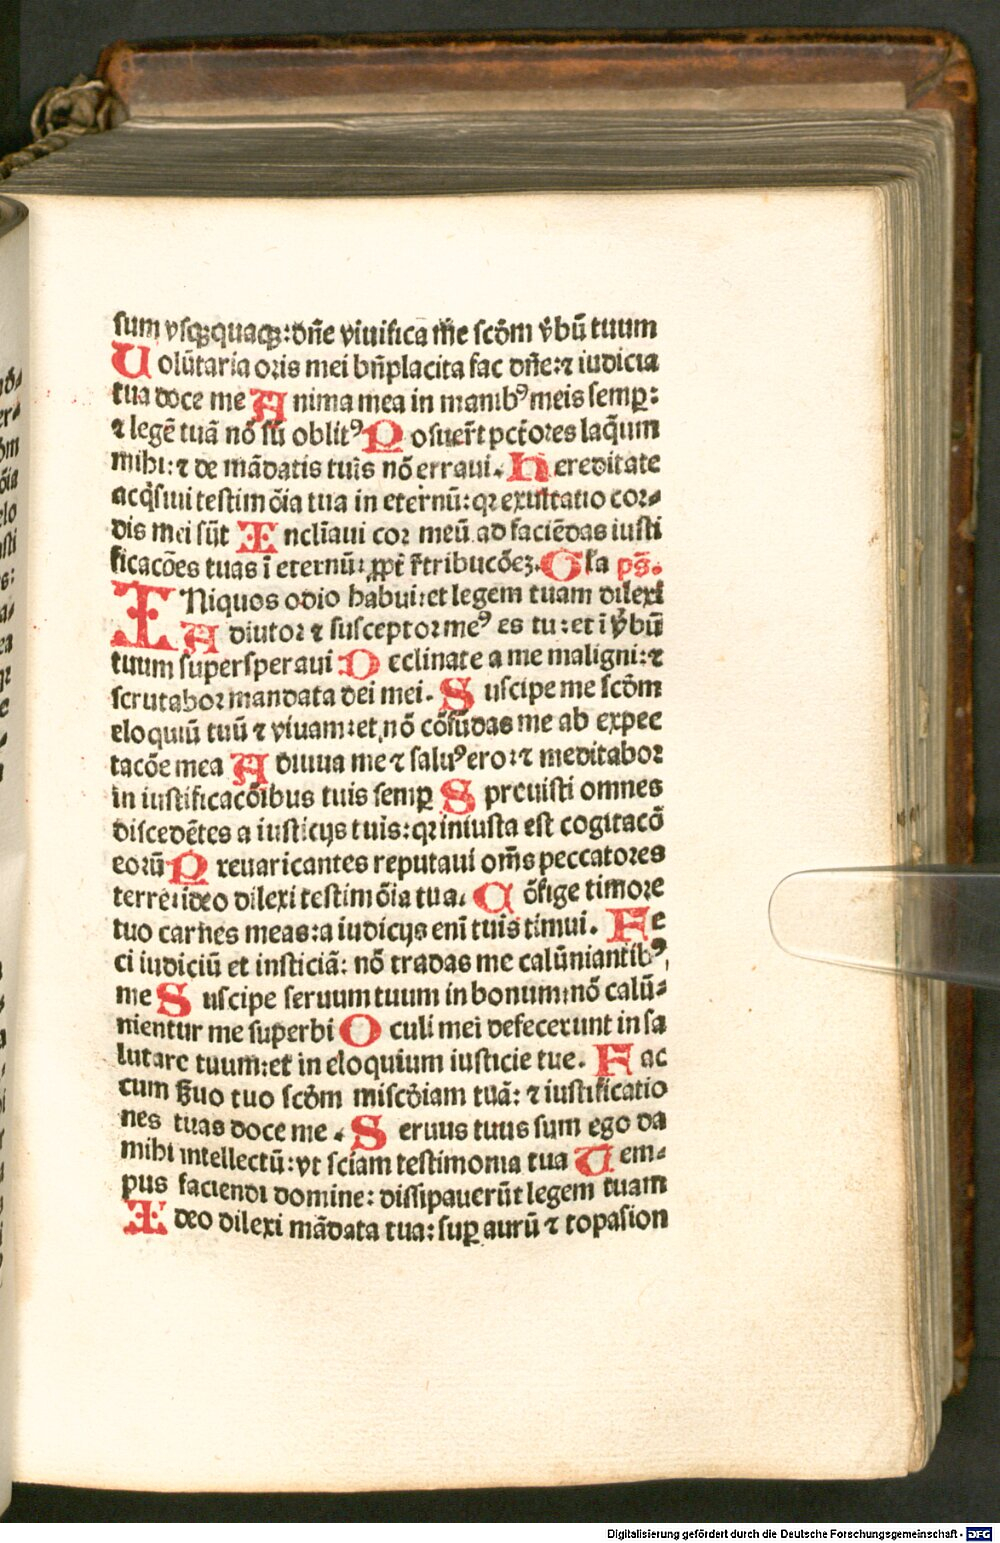 sum vsqꝫquaqꝫ: dñe viuifica me scḋm v̇bū tuum
Uolūtaria oris mei bn̄placita fac dñe: ⁊ iudicia
tua doce me Anima mea in manibꝰ meis semꝑ:
⁊ legē tuā nō sū oblitꝰ Posuer̄t pctōres laq̄um
mihi: ⁊ de mādatis tuis nō erraui. Hereditate
acq̄siui testimōia tua in eternū: qꝛ exultatio cor-
dis mei sūt Inclīaui cor meū ad faciēdas iusti
ficacōes tuas ī eternū: ꝓpt̄ r̄tribucōeꝫ. Gl̄a pš.
INiquos odio habui: et legem tuam dilexi
Adiutor ⁊ susceptor meꝰ es tu: et ī v̇bū
tuum supersperaui Declinate a me maligni: ⁊
scrutabor mandata dei mei. Suscipe me scḋm
eloquiū tuū ⁊ viuam: et nō cōfūdas me ab expec
tacōe mea Adiuua me ⁊ saluꝰ ero: ⁊ meditabor
in iustificacōibus tuis semꝑ Spreuisti omnes
discedētes a iusticijs tuis: qꝛ iniusta est cogitacō
eorū Preuaricantes reputaui om̄s peccatores
terre: ideo dilexi testimōia tua. Cōfige timore
tuo carnes meas: a iudicijs enī tuis timui. Fe
ci iudiciū et iusticiā: nō tradas me calūniantibꝰ
me Suscipe seruum tuum in bonum: nō calū-
nientur me superbi Oculi mei defecerunt in sa
lutare tuum: et in eloquium iusticie tue. Fac
cum ẜuo tuo scḋm misc̄diam tuā: ⁊ iustificatio
nes tuas doce me. Seruus tuus sum ego da
mihi intellectū: vt sciam testimonia tua Tem-
pus faciendi domine: dissipauerūt legem tuam
Ideo dilexi mādata tua: suꝑ aurū ⁊ topasion
Digitalisierung gefördert durch die Deutsche Forschungsgemeinschaft - DFG